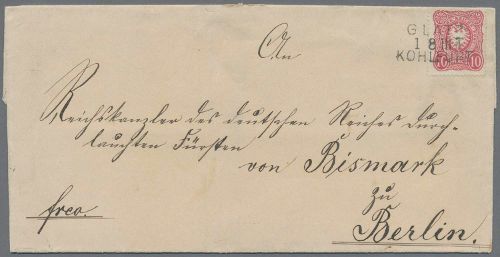 An
Reichskanzler des deutschen Reiches durch-
lauchten Fürsten
von Bismark
zu
Berlin.
frco.
10 10